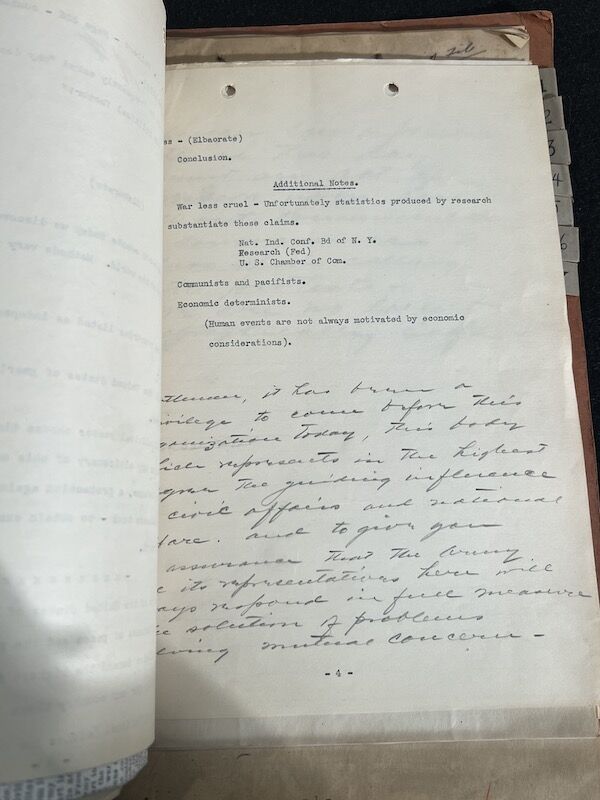 es - (Elbaorate)
Conclusion.
Additional Notes.
War less cruel - Unfortunately statistics produced by research
substantiate these claims.
Nat. Ind. Conf. Bd of N. Y.
Research (Fed)
U. S. Chamber of Com.
Communists and pacifists.
Economic determinists.
(Human events are not always motivated by economic
considerations).
tlemen, it has been a
vilege to come before this
ganization today, this body
hich represents in the highest
gree the guiding influence
civic affairs and national
fare. and to give you
assurance that the Army
its representatives here will
ays respond in full measure
solution of problems
lving mutual concern -
- 4 -
1
2
3
4
5
6